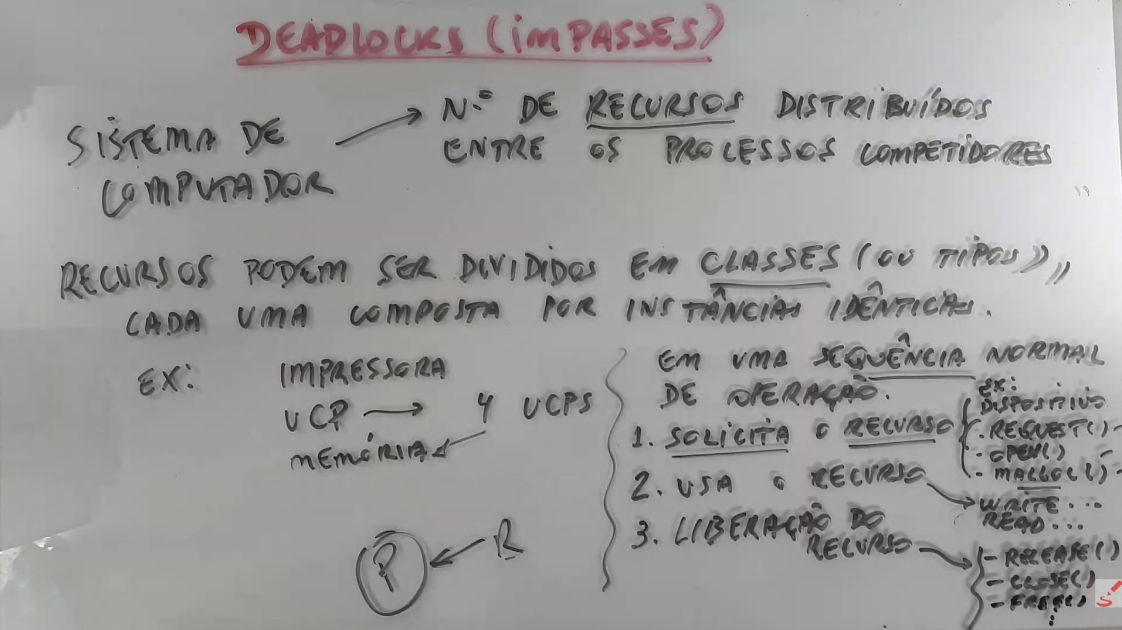 DEADLOCKS (IMPASSES)
SISTEMA DE
COMPUTADOR
N.º DE RECURSOS DISTRIBUÍDOS
ENTRE OS PROCESSOS COMPETIDORES
RECURSOS PODEM SER DIVIDIDOS EM CLASSES (OU TIPOS),,
CADA UMA COMPOSTA POR INSTÂNCIAS IDÊNTICAS.
EX:
IMPRESSORA
UCP → 4 UCPS
MEMÓRIA
P ← R
EM UMA SEQUÊNCIA NORMAL
DE OPERAÇÃO.
1. SOLICITA O RECURSO
EX:
DISPOSITIVO
- REQUEST()
- OPEN()
- MALLOC()
2. USA O RECURSO
WRITE...
READ...
3. LIBERAÇÃO DO
RECURSO
- RELEASE()
- CLOSE()
- FREE()